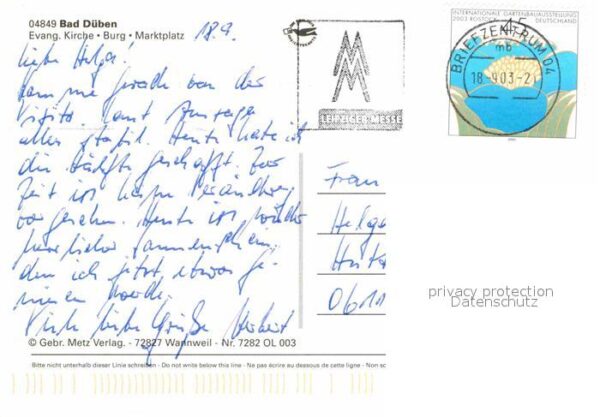 04849 Bad Düben
Evang. Kirche • Burg • Marktplatz
18.9.
Liebe Helga!
komme gerade von der
Visite. Laut Aussage
alles stabil. Heute habe ich
die Hälfte geschafft. Zur
Zeit ist keine Veränderung
vorgesehen. Heute ist wieder
herrlicher Sonnenschein,
den ich jetzt etwas ge-
nießen werde.
Viele liebe Grüße Herbert
© Gebr. Metz Verlag. - 72827 Wannweil - Nr. 7282 OL 003
Bitte nicht unterhalb dieser Linie schreiben - Do not write below this line - Ne pas écrire au dessous de cette ligne - Non sc
LEIPZIGER MESSE
INTERNATIONALE GARTENBAUAUSSTELLUNG
2003 ROSTOCK DEUTSCHLAND
45
BRIEFZENTRUM 04
mb
18.9.03-21
Frau
Helga
0611
privacy protection
Datenschutz